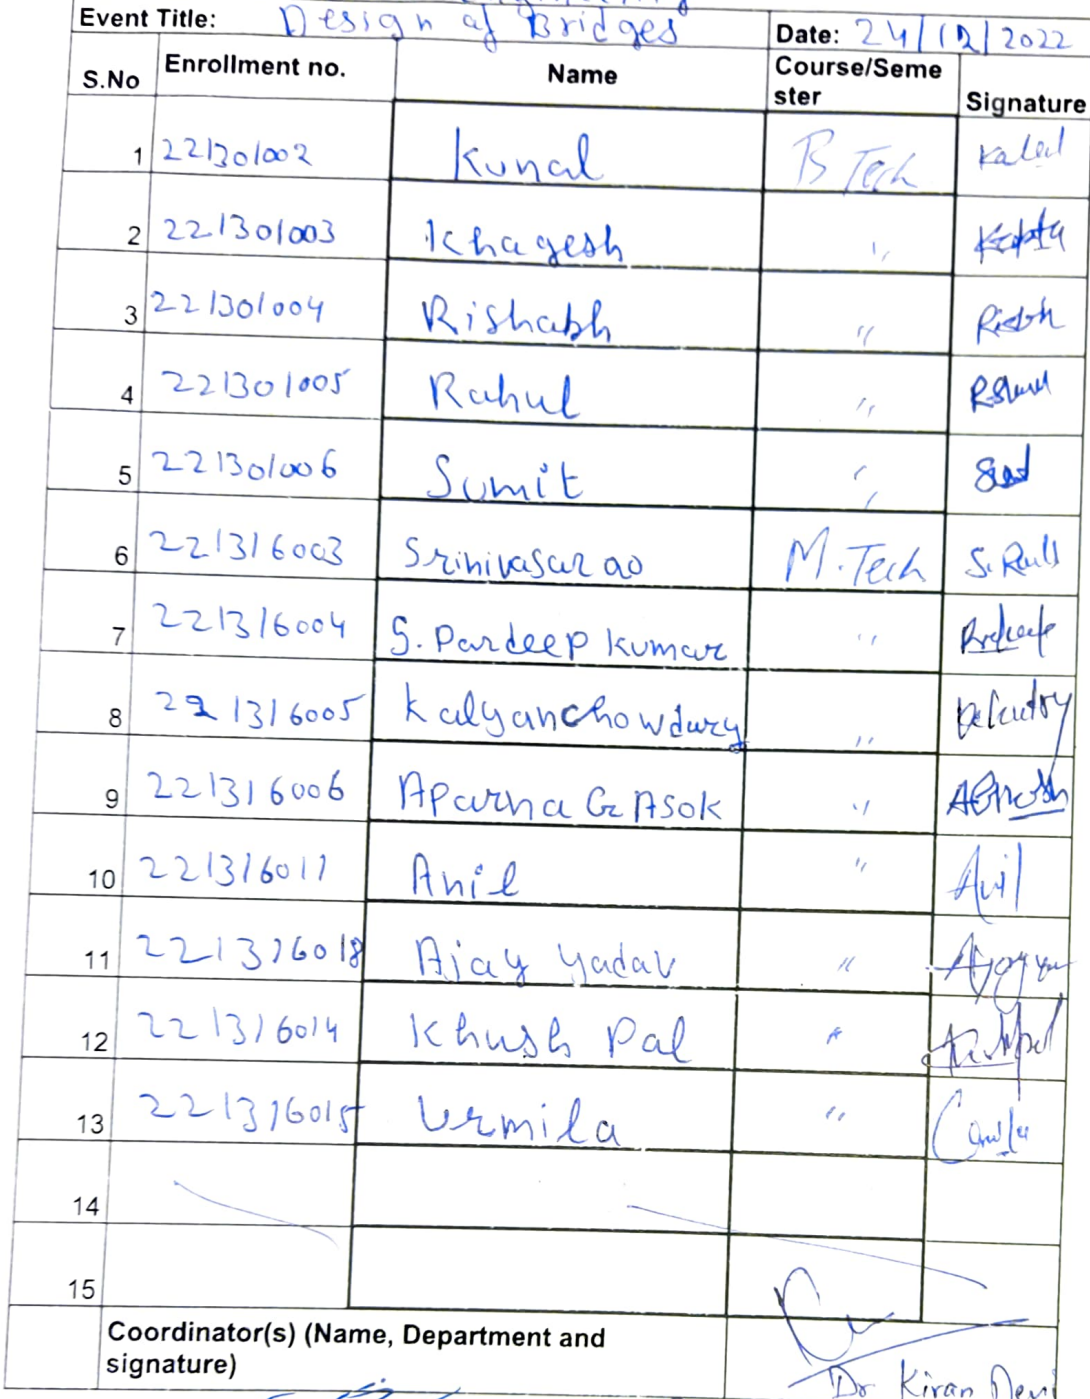 Event Title: Design of Bridges Date: 24/12/2022
S.No Enrollment no. Name Course/Seme
ster Signature
1 221301002 Kunal B Tech
2 221301003 Khagesh "
3 221301004 Rishabh "
4 221301005 Rahul "
5 221301006 Sumit "
6 221316003 Srinivasarao M.Tech
7 221316004 S. Pardeep Kumar "
8 221316005 Kalyanchowdury "
9 221316006 Aparna G Asok "
10 221316011 Anil " Anil
11 221316018 Ajay Yadav "
12 221316014 Khush Pal "
13 221316015 Urmila "
14
15
Coordinator(s) (Name, Department and
signature)
Dr Kiran Devi